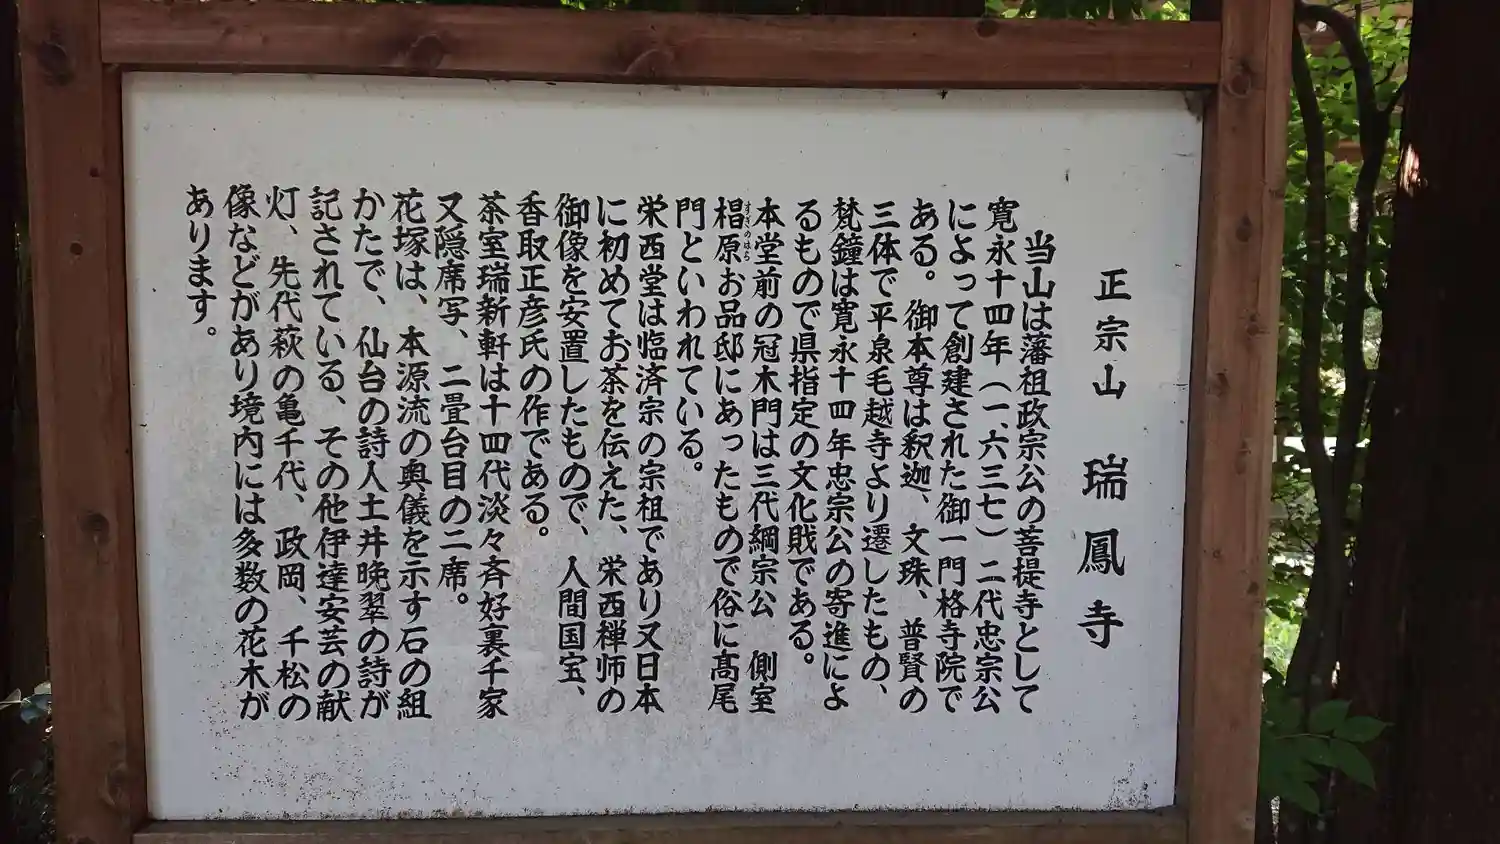 正宗山 瑞鳳寺
当山は藩祖政宗公の菩提寺として
寛永十四年(一、六三七)二代忠宗公
によって創建された御一門格寺院で
ある。御本尊は釈迦、文珠、普賢の
三体で平泉毛越寺より遷したもの、
梵鐘は寛永十四年忠宗公の寄進によ
るもので県指定の文化財である。
本堂前の冠木門は三代綱宗公 側室
椙原お品邸にあったもので俗に髙尾
すぎのはら
門といわれている。
栄西堂は臨済宗の宗祖であり又日本
に初めてお茶を伝えた、栄西禅师の
御像を安置したもので、人間国宝、
香取正彦氏の作である。
茶室瑞新軒は十四代淡々斉好裏千家
又隠席写、二畳台目の二席。
花塚は、本源流の奥儀を示す石の組
かたで、仙台の詩人土井晩翠の詩が
記されている、その他伊達安芸の献
灯、先代萩の亀千代、政岡、千松の
像などがあり境内には多数の花木が
あります。